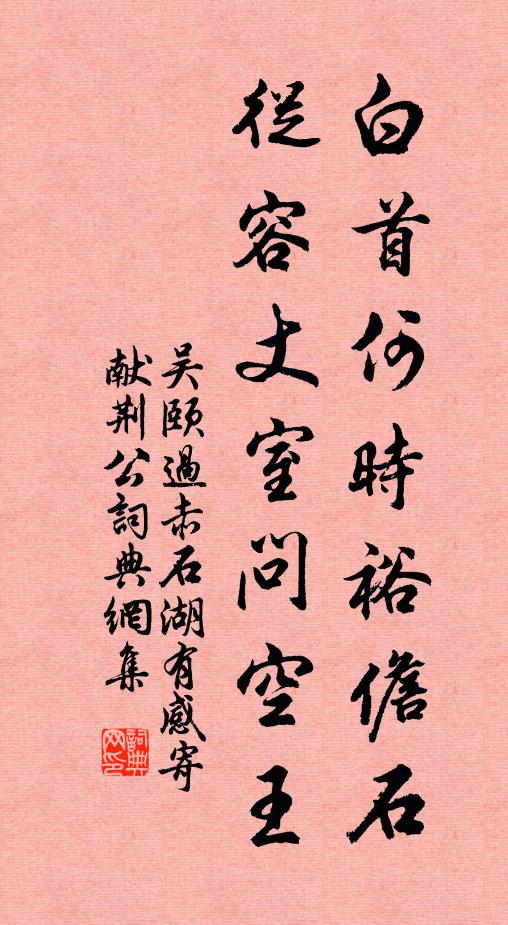 白首何時裕儋石
從容丈室問空王
吴頤過赤石湖有感寄
献荆公詞典網集
詞典网印